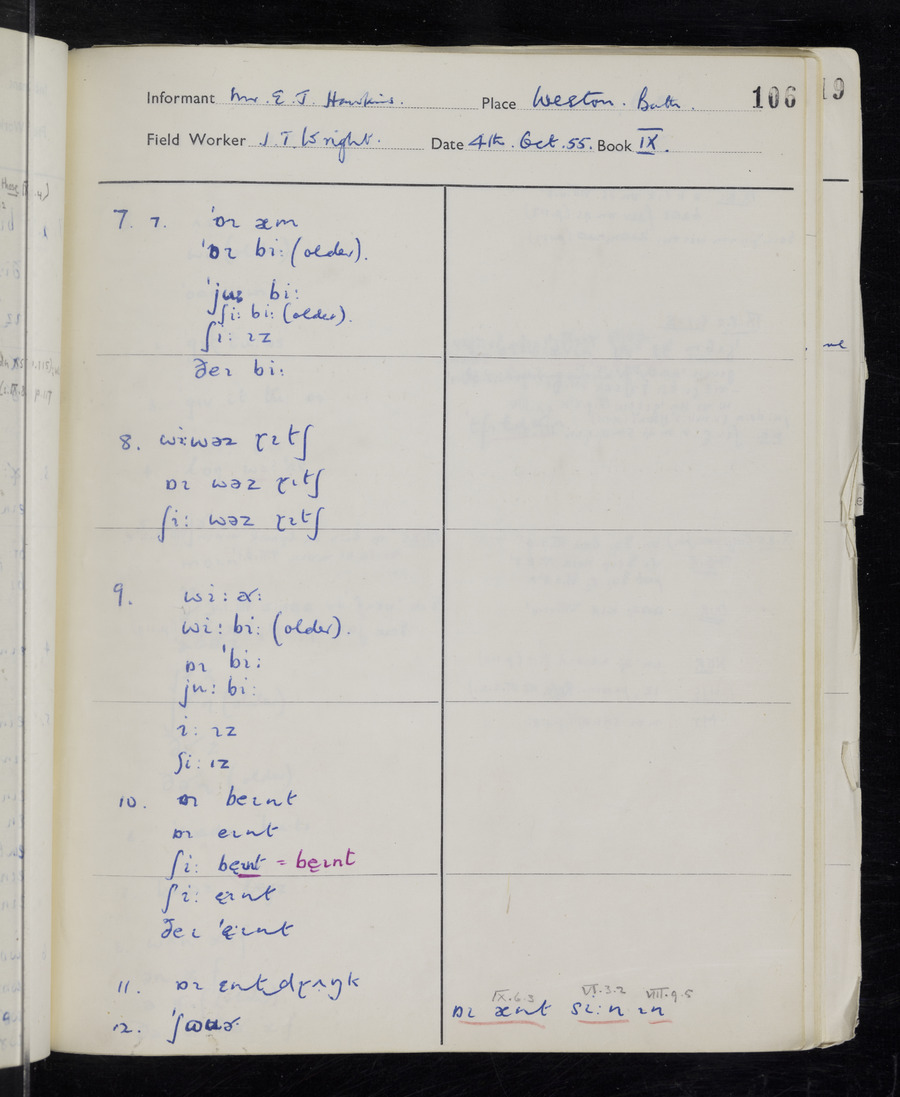 Informant Mr. E. J. Hawkins. Place Weston. Bath. 106
Field Worker J. T. Wright. Date 4th. Oct. 55. Book IX.
19
7. 7. ˈɒɪ æm
ˈɒɪ bi: (older).
ˈju: bi:
ʃi: bi: (older).
ʃi: ɪz
ðeɪ bi:
8. wi: wəz ɽɪtʃ
ɒɪ wəz ɽɪtʃ
ʃi: wəz ɽɪtʃ
9. wi: ɚ:
wi: bi: (older).
ɒɪ ˈbi:
ju: bi:
i: ɪz
ʃi: ɪz
10. ɒɪ beɪnt
ɒɪ eɪnt
ʃi: bęɪnt = bęɪnt
ʃi: ęɪnt
ðeɪ ˈęɪnt
11. ɒɪ ent dɽʌŋk
IX.6.3 VI.3.2 VIII.9.5
ɒɪ ænt sɪ:n ɪn
12.